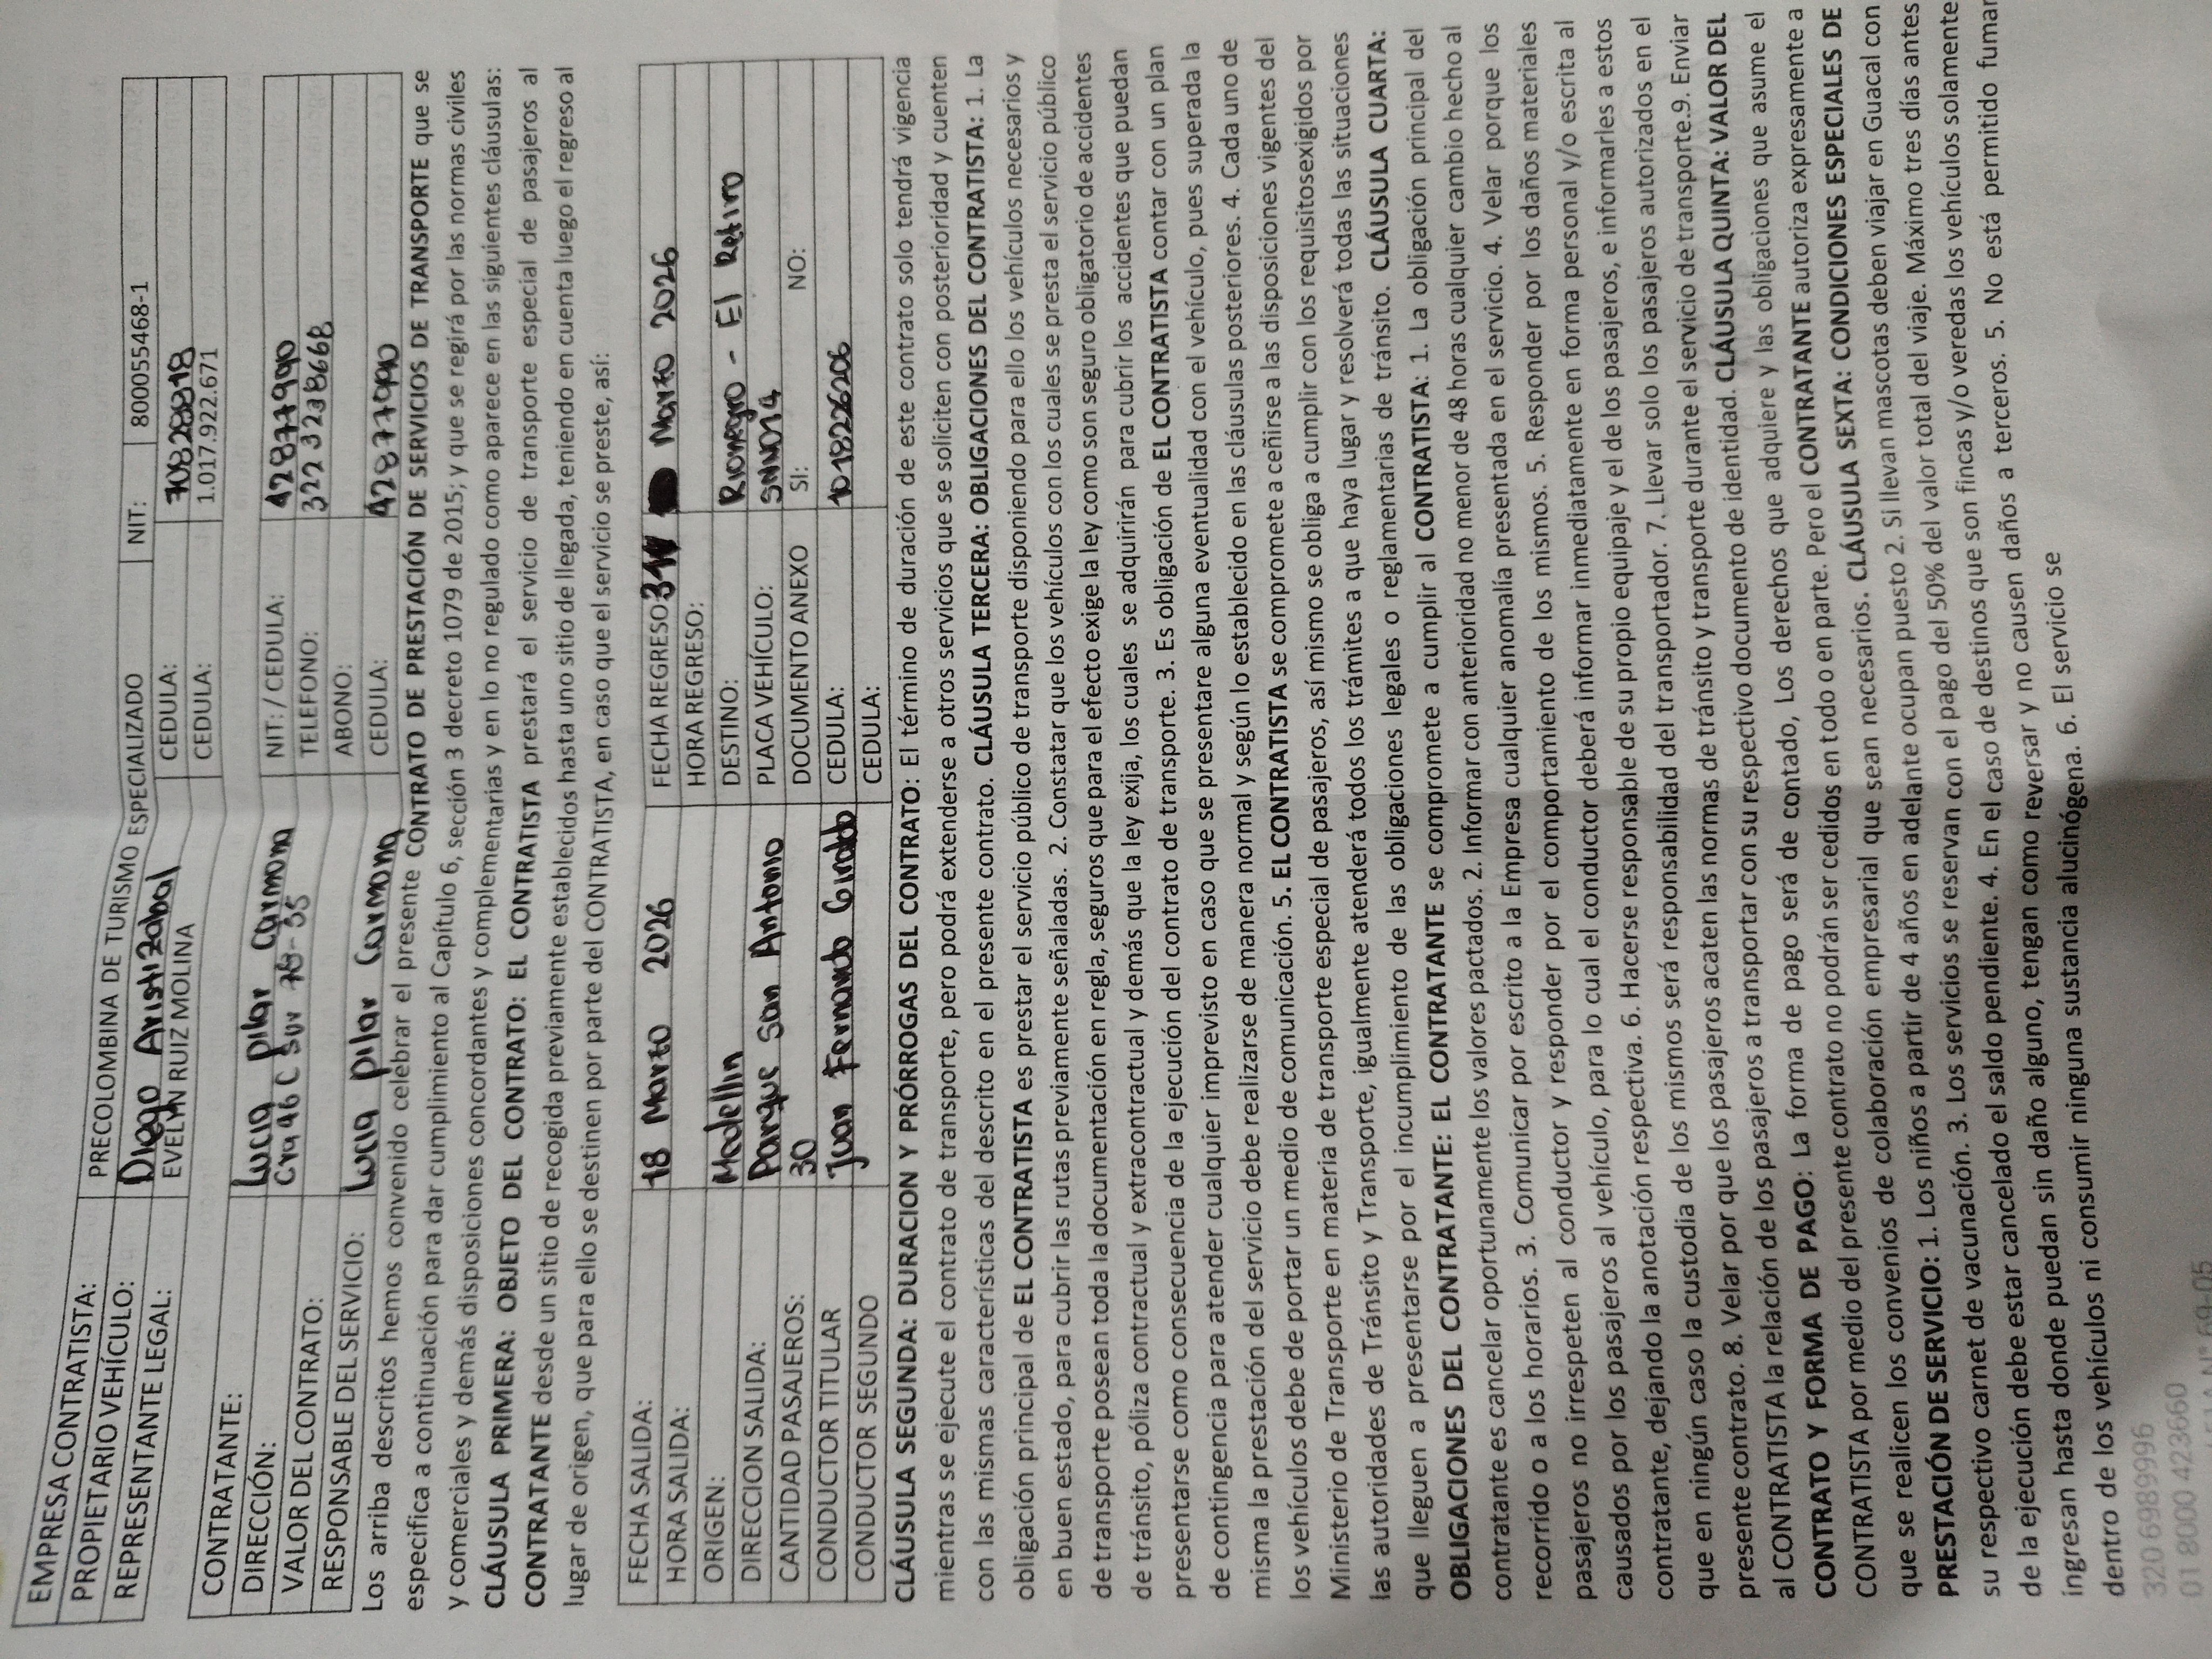 EMPRESA CONTRATISTA: PRECOLOMBINA DE TURISMO ESPECIALIZADO NIT: 800055468-1
PROPIETARIO VEHÍCULO: Diego Aristizabal CEDULA: 708288818
REPRESENTANTE LEGAL: EVELYN RUIZ MOLINA CEDULA: 1.017.922.671
CONTRATANTE: Lucia pilar carmona NIT: / CEDULA: 42877990
DIRECCIÓN: Cra 46 C sur 78-35 TELEFONO: 322 3238668
VALOR DEL CONTRATO: ABONO:
RESPONSABLE DEL SERVICIO: Lucia pilar Carmona CEDULA: 42877990
Los arriba descritos hemos convenido celebrar el presente CONTRATO DE PRESTACIÓN DE SERVICIOS DE TRANSPORTE que se
especifica a continuación para dar cumplimiento al Capítulo 6, sección 3 decreto 1079 de 2015; y que se regirá por las normas civiles
y comerciales y demás disposiciones concordantes y complementarias y en lo no regulado como aparece en las siguientes cláusulas:
CLÁUSULA PRIMERA: OBJETO DEL CONTRATO: EL CONTRATISTA prestará el servicio de transporte especial de pasajeros al
CONTRATANTE desde un sitio de recogida previamente establecidos hasta uno sitio de llegada, teniendo en cuenta luego el regreso al
lugar de origen, que para ello se destinen por parte del CONTRATISTA, en caso que el servicio se preste, así:
FECHA SALIDA: 18 Marzo 2026 FECHA REGRESO: 31 Marzo 2026
HORA SALIDA: HORA REGRESO:
ORIGEN: Medellin DESTINO: Rionegro - El Retiro
DIRECCION SALIDA: Parque San Antonio PLACA VEHÍCULO: SNN014
CANTIDAD PASAJEROS: 30 DOCUMENTO ANEXO SI: NO:
CONDUCTOR TITULAR Juan Fernando Giraldo CEDULA: 1018226206
CONDUCTOR SEGUNDO CEDULA:
CLÁUSULA SEGUNDA: DURACION Y PRÓRROGAS DEL CONTRATO: El término de duración de este contrato solo tendrá vigencia
mientras se ejecute el contrato de transporte, pero podrá extenderse a otros servicios que se soliciten con posterioridad y cuenten
con las mismas características del descrito en el presente contrato. CLÁUSULA TERCERA: OBLIGACIONES DEL CONTRATISTA: 1. La
obligación principal de EL CONTRATISTA es prestar el servicio público de transporte disponiendo para ello los vehículos necesarios y
en buen estado, para cubrir las rutas previamente señaladas. 2. Constatar que los vehículos con los cuales se presta el servicio público
de transporte posean toda la documentación en regla, seguros que para el efecto exige la ley como son seguro obligatorio de accidentes
de tránsito, póliza contractual y extracontractual y demás que la ley exija, los cuales se adquirirán para cubrir los accidentes que puedan
presentarse como consecuencia de la ejecución del contrato de transporte. 3. Es obligación de EL CONTRATISTA contar con un plan
de contingencia para atender cualquier imprevisto en caso que se presentare alguna eventualidad con el vehículo, pues superada la
misma la prestación del servicio debe realizarse de manera normal y según lo establecido en las cláusulas posteriores. 4. Cada uno de
los vehículos debe de portar un medio de comunicación. 5. EL CONTRATISTA se compromete a ceñirse a las disposiciones vigentes del
Ministerio de Transporte en materia de transporte especial de pasajeros, así mismo se obliga a cumplir con los requisitosexigidos por
las autoridades de Tránsito y Transporte, igualmente atenderá todos los trámites a que haya lugar y resolverá todas las situaciones
que lleguen a presentarse por el incumplimiento de las obligaciones legales o reglamentarias de tránsito. CLÁUSULA CUARTA:
OBLIGACIONES DEL CONTRATANTE: EL CONTRATANTE se compromete a cumplir al CONTRATISTA: 1. La obligación principal del
contratante es cancelar oportunamente los valores pactados. 2. Informar con anterioridad no menor de 48 horas cualquier cambio hecho al
recorrido o a los horarios. 3. Comunicar por escrito a la Empresa cualquier anomalía presentada en el servicio. 4. Velar porque los
pasajeros no irrespeten al conductor y responder por el comportamiento de los mismos. 5. Responder por los daños materiales
causados por los pasajeros al vehículo, para lo cual el conductor deberá informar inmediatamente en forma personal y/o escrita al
contratante, dejando la anotación respectiva. 6. Hacerse responsable de su propio equipaje y el de los pasajeros, e informarles a estos
que en ningún caso la custodia de los mismos será responsabilidad del transportador. 7. Llevar solo los pasajeros autorizados en el
presente contrato. 8. Velar por que los pasajeros acaten las normas de tránsito y transporte durante el servicio de transporte.9. Enviar
al CONTRATISTA la relación de los pasajeros a transportar con su respectivo documento de identidad. CLÁUSULA QUINTA: VALOR DEL
CONTRATO Y FORMA DE PAGO: La forma de pago será de contado, Los derechos que adquiere y las obligaciones que asume el
CONTRATISTA por medio del presente contrato no podrán ser cedidos en todo o en parte. Pero el CONTRATANTE autoriza expresamente a
que se realicen los convenios de colaboración empresarial que sean necesarios. CLÁUSULA SEXTA: CONDICIONES ESPECIALES DE
PRESTACIÓN DE SERVICIO: 1. Los niños a partir de 4 años en adelante ocupan puesto 2. Si llevan mascotas deben viajar en Guacal con
su respectivo carnet de vacunación. 3. Los servicios se reservan con el pago del 50% del valor total del viaje. Máximo tres días antes
de la ejecución debe estar cancelado el saldo pendiente. 4. En el caso de destinos que son fincas y/o veredas los vehículos solamente
ingresan hasta donde puedan sin daño alguno, tengan como reversar y no causen daños a terceros. 5. No está permitido fumar
dentro de los vehículos ni consumir ninguna sustancia alucinógena. 6. El servicio se
320 6989996
01 8000 423660